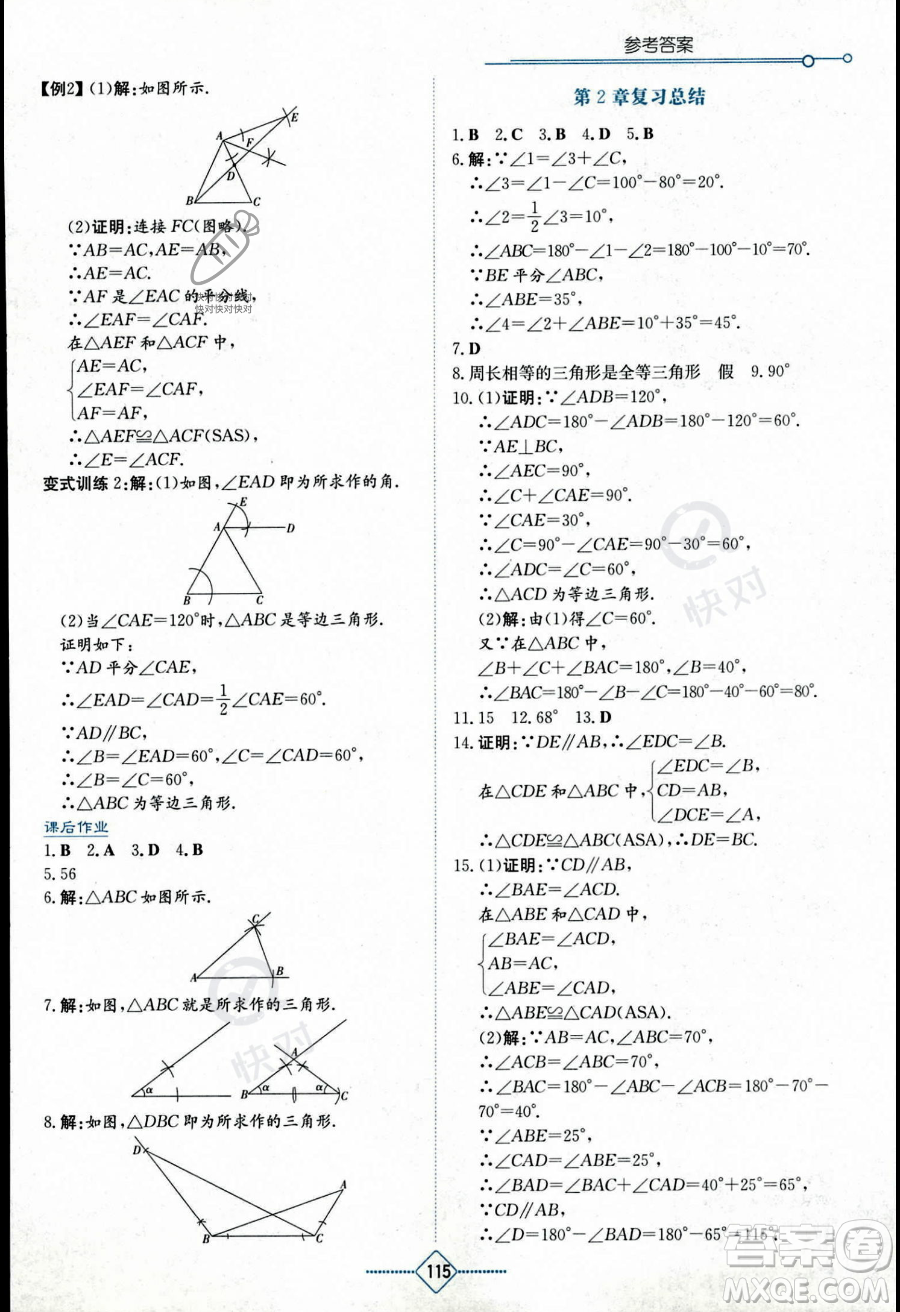 参考答案
【例2】(1)解:如图所示.
A
E
F
D
B
C
(2)证明:连接FC(图略).
∵AB=AC,AE=AB,
∴AE=AC.
∵AF是∠EAC的平分线,
∴∠EAF=∠CAF.
在△AEF和△ACF中,
AE=AC,
∠EAF=∠CAF,
AF=AF,
∴△AEF≌△ACF(SAS),
∴∠E=∠ACF.
快对快对快对
快对快对快对
变式训练2:解:(1)如图,∠EAD即为所求作的角.
E
A
D
B
C
(2)当∠CAE=120°时,△ABC是等边三角形.
证明如下:
∵AD平分∠CAE,
∴∠EAD=∠CAD=1/2∠CAE=60°.
∵AD∥BC,
∴∠B=∠EAD=60°,
∴∠B=∠C=60°.
∴△ABC为等边三角形.
课后作业
1.B 2.A 3.D 4.B
5.56
6.解:△ABC如图所示.
C
A
B
7.解:如图,△ABC就是所求作的三角形.
α
A
B
α
α
C
8.解:如图,△DBC即为所求作的三角形.
D
A
B
C
第2章复习总结
1.B 2.C 3.B 4.D 5.B
6.解:∵∠1=∠3+∠C,
∴∠3=∠1-∠C=100°-80°=20°.
∴∠2=1/2∠3=10°,
∴∠ABC=180°-∠1-∠2=180°-100°-10°=70°.
∵BE平分∠ABC,
∴∠ABE=35°,
∴∠4=∠2+∠ABE=10°+35°=45°.
7.D
8.周长相等的三角形是全等三角形 假 9.90°
10.(1)证明:∵∠ADB=120°,
∴∠ADC=180°-∠ADB=180°-120°=60°.
∵AE⊥BC,
∴∠AEC=90°,
∴∠C+∠CAE=90°.
∵∠CAE=30°,
∴∠C=90°-∠CAE=90°-30°=60°,
∴△ACD为等边三角形.
(2)解:由(1)得∠C=60°.
又∵在△ABC中,
∠B+∠C+∠BAC=180°,
∴∠BAC=180°-∠B-∠C=180°-40°-60°=80°.
11.15 12.68° 13.D
14.证明:∵DE∥AB,∴∠EDC=∠B.
在△CDE和△ABC中,
∠EDC=∠B,
CD=AB,
∠DCE=∠A,
∴△CDE≌△ABC(ASA),∴DE=BC.
15.(1)证明:∵CD∥AB,
∴∠BAE=∠ACD.
在△ABE和△CAD中,
∠BAE=∠ACD,
AB=AC,
∠ABE=∠CAD,
∴△ABE≌△CAD(ASA).
(2)解:∵AB=AC,∠ABC=70°,
∴∠ACB=∠ABC=70°,
∴∠BAC=180°-∠ABC-∠ACB=180°-70°-
70°=40°.
∵∠ABE=25°,
∴∠CAD=∠ABE=25°,
∴∠BAD=∠BAC+∠CAD=40°+25°=65°,
∵CD∥AB,
∴∠D=180°-∠BAD=180°-65°=115°.
快对
快对
115
答案圈
MXQE.COM